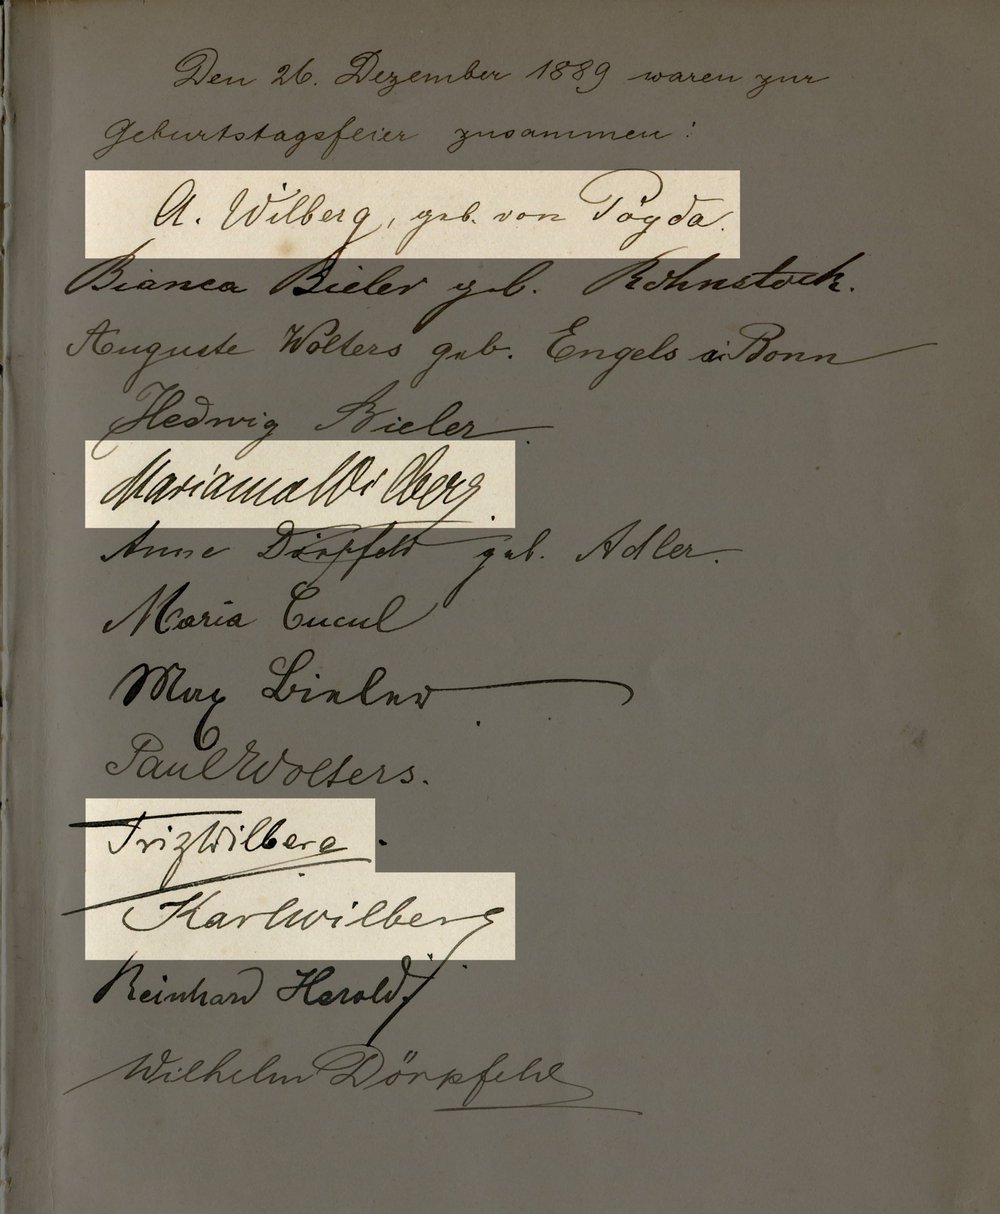 Den 26. Dezember 1889 waren zur
Geburtstagsfeier zusammen:
A. Wilberg, geb. von Pöyda.
Bianca Bieler geb. Rohnstock.
Auguste Wolters geb. Engels a. Bonn
Hedwig Bieler.
Marianna Wilberg.
Anne Dörpfeld geb. Adler.
Maria Cucul
Max Bieler
Paul Wolters.
Friz Wilberg.
Karl Wilberg
Reinhard Herold.
Wilhelm Dörpfeld